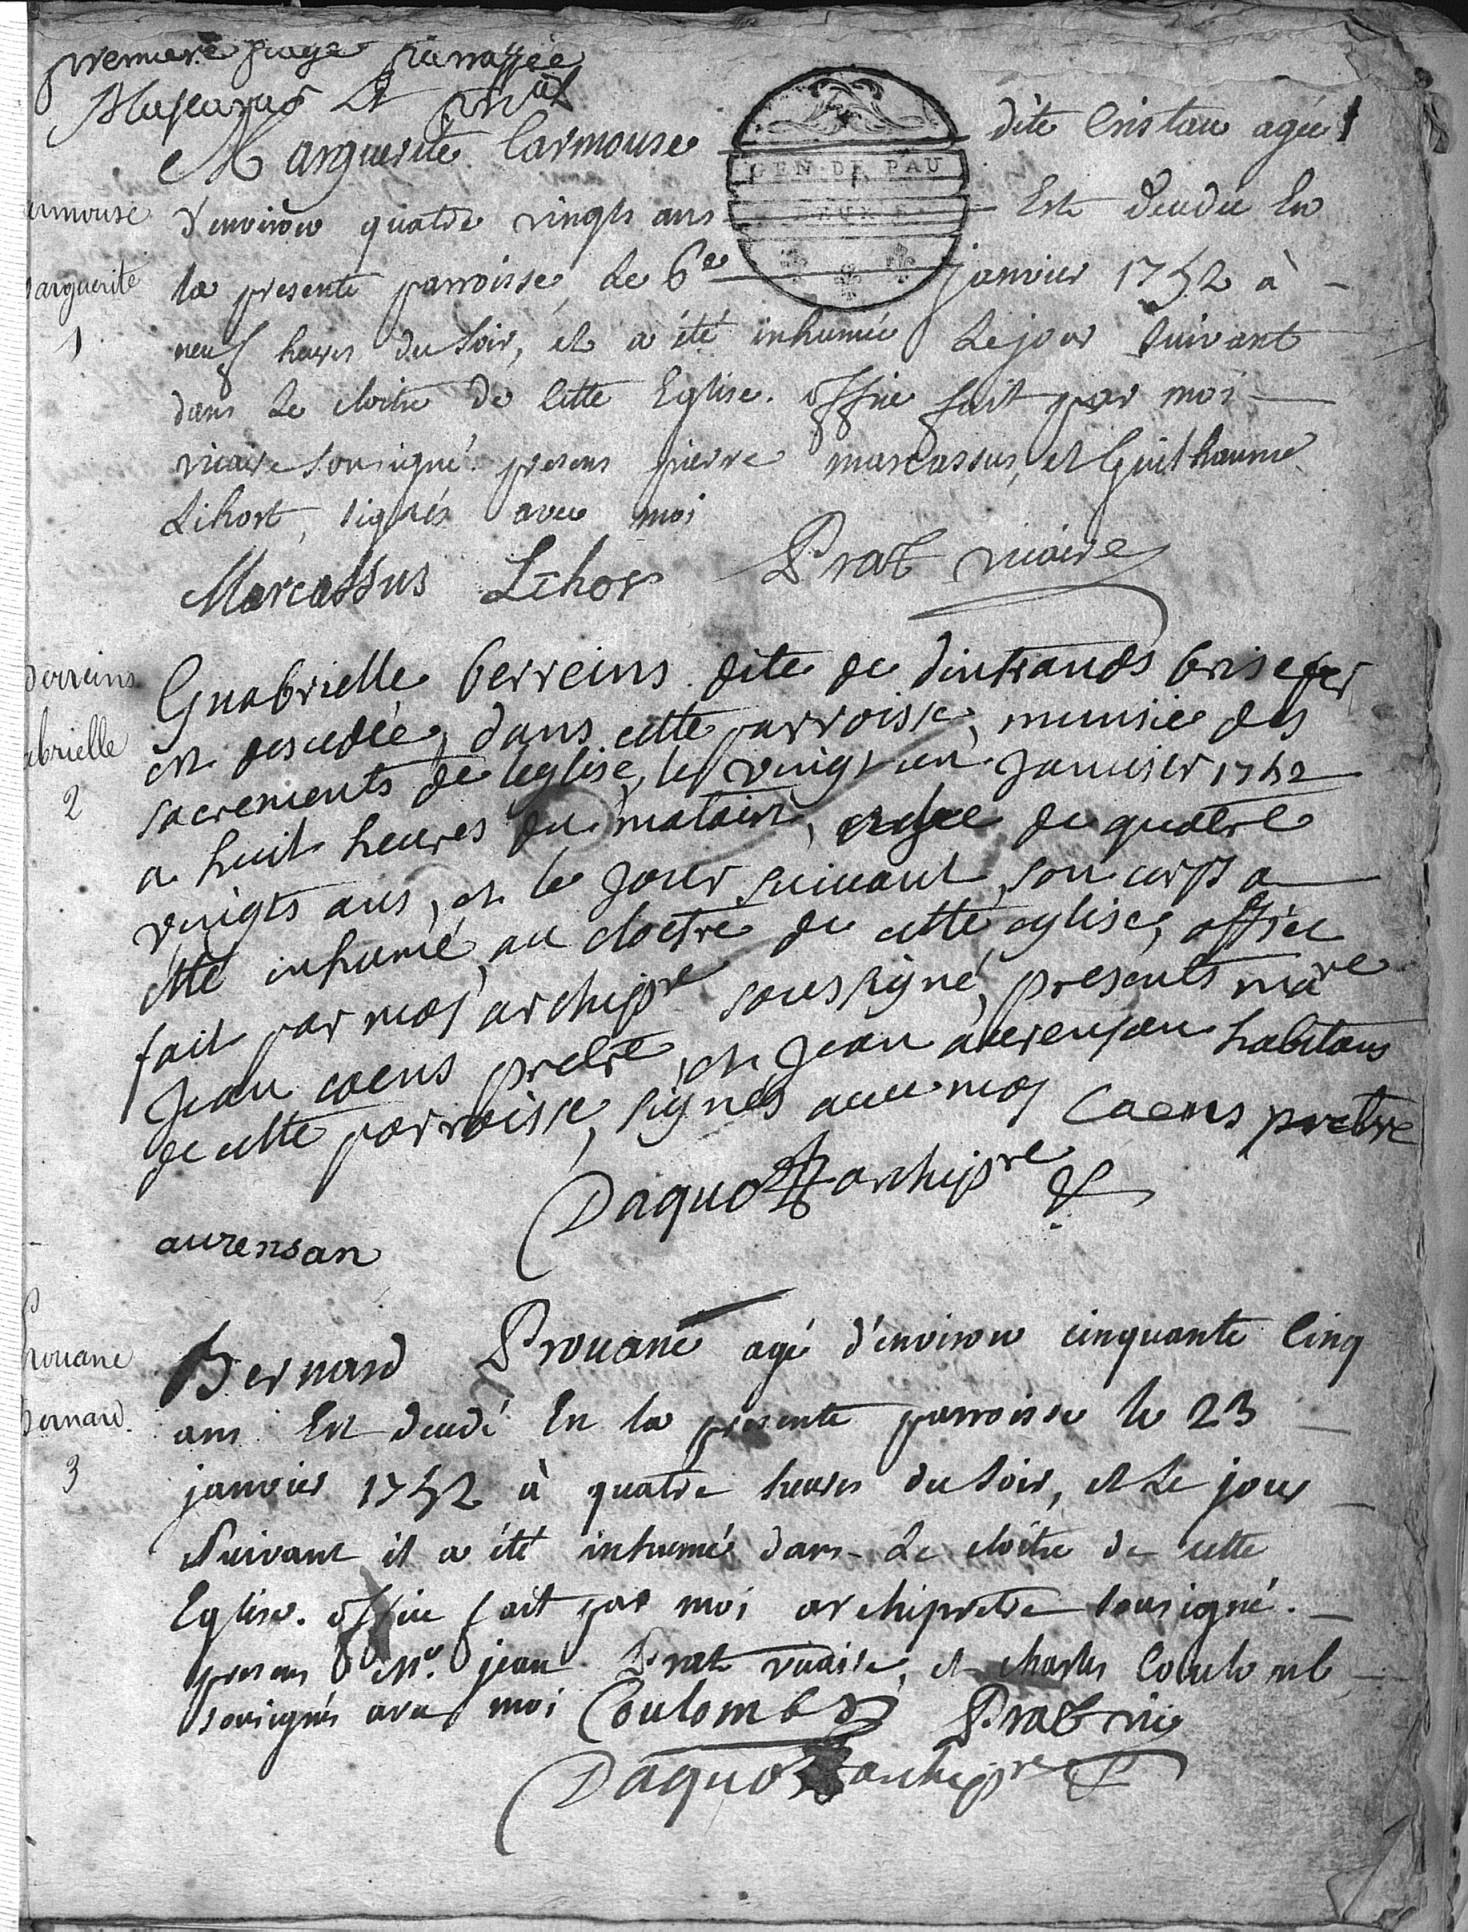 premiere page parraffée
Marguerite Carmouse dite Cristau agée
1
armouse
d'environ quatre vingts ans Est decedée En
GEN·DE PAU
arguerite
la presente parroisse, Le 6e janvier 1752 à
1
neuf heures du soir, et a été inhumée Le jour suivant
dans Le cloitre De Cette Eglise. office fait par moi
vicaire sousigné. presens pierre marcassus, et Guilhaume
Lihort, signés avec moi
Marcassus Lihor Prat vicaire
berreins
Guabrielle berreins dite de dintrands brisefer
abrielle
est desedée, dans cette parroisse, munsiée des
2
sacrements de leglise, le vingt un janvisir 1752
a huit heures du matain, agée de quatre
vingts ans, et le jour suivant, son corps a
été inhumé, au cloetre de cette eglise, office
fait par moy archipre soussigné, presents mare
jean caens pretre, et jean aurensan habitans
de cette parroisse, signés avec moy Caens pretre
Daquo archipre
aurensan
Prouane
Bernard Prouane agé d'environ cinquante Cinq
bernard.
ans Est decedé En la presente parroisse le 23
3
janvier 1752 à quatre heures du soir, et Le jour
suivant il a été inhumé dans Le cloitre de cette
Eglise. office fait par moi archipretre sousigné.
presens Mr. jean Prat vicaire, et charles Coulomb
sousignés avec moi Coulomb Prat vic
Daquo archipre